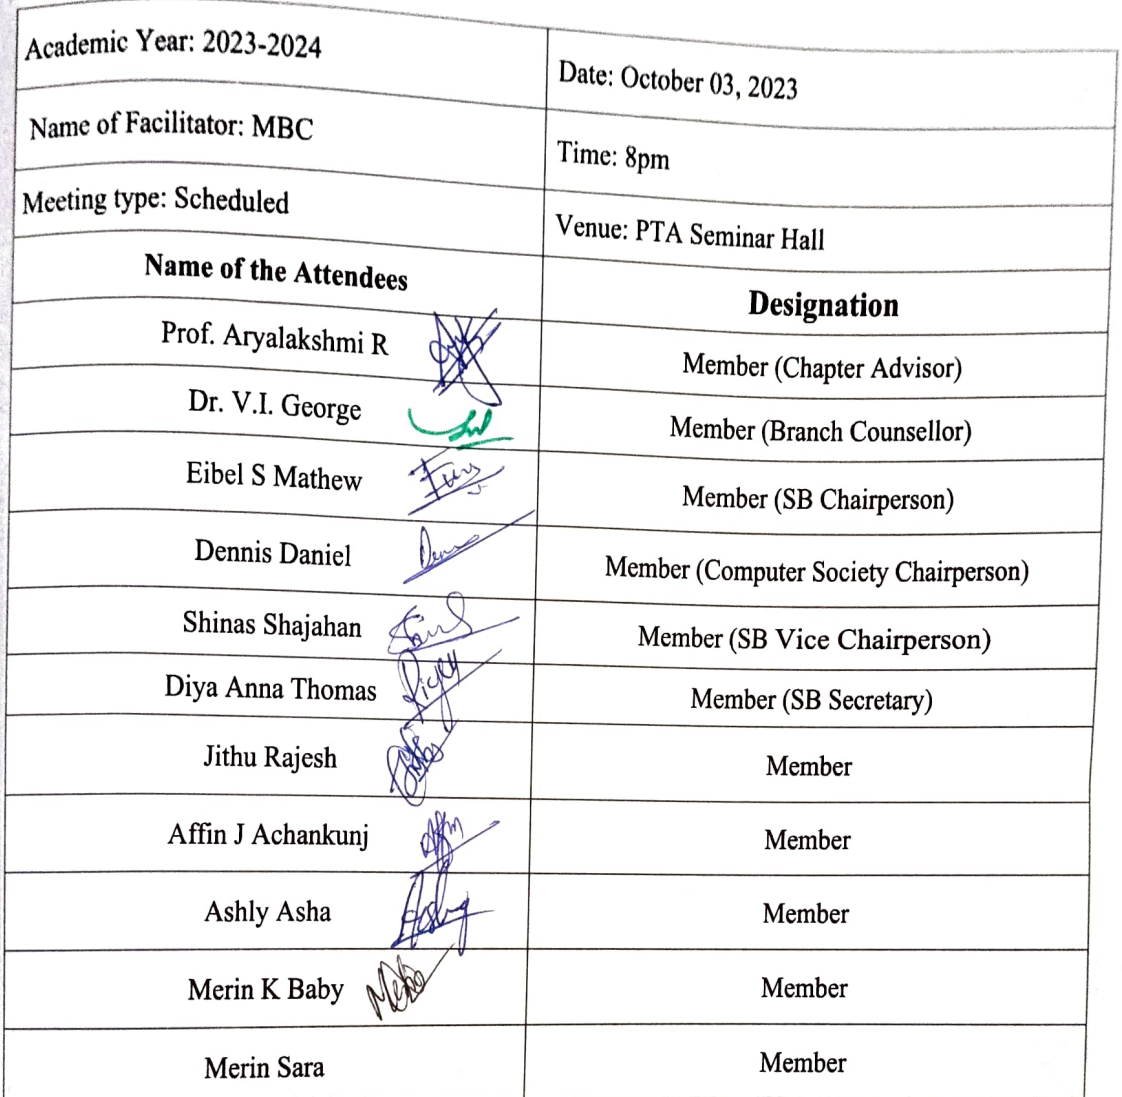 Academic Year: 2023-2024
Date: October 03, 2023
Name of Facilitator: MBC
Time: 8pm
Meeting type: Scheduled
Venue: PTA Seminar Hall
Name of the Attendees
Designation
Prof. Aryalakshmi R
Member (Chapter Advisor)
Dr. V.I. George
Member (Branch Counsellor)
Eibel S Mathew
Member (SB Chairperson)
Dennis Daniel
Member (Computer Society Chairperson)
Shinas Shajahan
Member (SB Vice Chairperson)
Diya Anna Thomas
Member (SB Secretary)
Jithu Rajesh
Member
Affin J Achankunj
Member
Ashly Asha
Member
Merin K Baby
Member
Merin Sara
Member